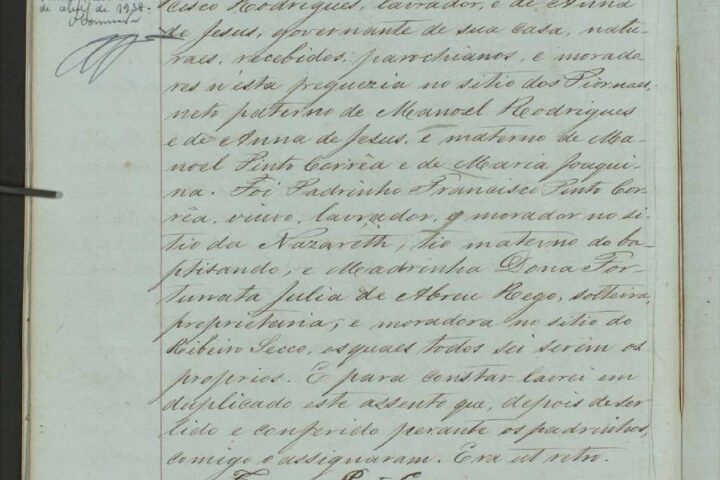 de abril de 1938.
cisco Rodrigues, lavrador, e de Anna
de Jesus, governante de sua casa, natu-
raes, recebidos, parochianos, e morado-
res n'esta freguezia no sitio dos Piornaes,
neto paterno de Manoel Rodrigues
e de Anna de Jesus, e materno de Ma-
noel Pinto Corrêa e de Maria Joaqui-
na. Foi Padrinho Francisco Pinto Cor-
rêa, viuvo, lavrador, e morador no si-
tio da Nazareth, tio materno do ba-
ptisando, e Madrinha Dona For-
tunata Julia de Abreu Rego, solteira,
proprietaria, e moradora no sitio do
Ribeiro Secco, os quaes todos sei serem os
proprios. E para constar lavrei em
duplicado este assento que, depois de ser
lido e conferido perante os padrinhos,
comigo o assignaram. Era ut retro.